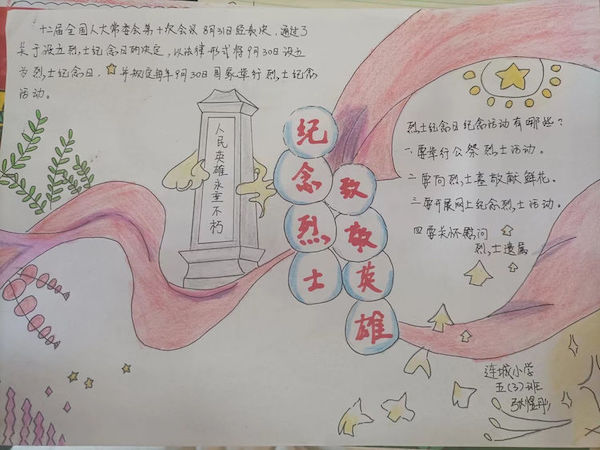 十二届全国人大常委会第十次会议8月31日经表决，通过了
关于设立烈士纪念日的决定，以法律形式将9月30日设立
为烈士纪念日，并规定每年9月30日国家举行烈士纪念
活动。
人民英雄永垂不朽
纪念烈士
致敬英雄
烈士纪念日纪念活动有哪些？
一.要举行公祭烈士活动。
二.要向烈士墓敬献鲜花。
三.要开展网上纪念烈士活动。
四要关怀慰问
烈士遗属
连城小学
五(3)班